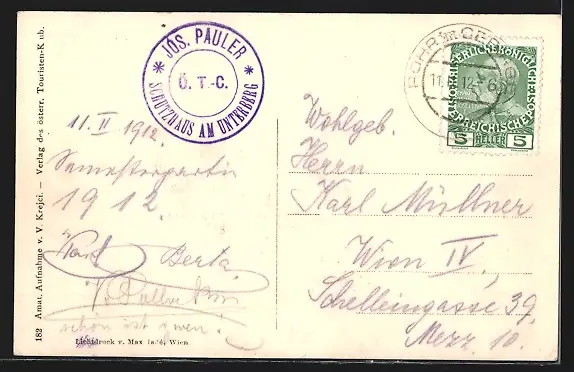 JOS. PAULER
Ö. T.-C.
SCHUTZHAUS AM UNTERBERG
ROHR im GEB
11. 12-6
KAISERLICHE KÖNIGLICHE
ÖSTERREICHISCHE POST
5 HELLER 5
11. II 1912.
Semesterpartie
1912.
Karl Berta
schön ist gwen!
Wohlgeb.
Herrn
Karl Müllner
Wien IV.,
Schelleingasse 39,
Mezz. 10.
182 Amat. Aufnahme v. V. Krejci. — Verlag des österr. Touristen-K ub.
Lichtdruck v. Max Jaffé, Wien